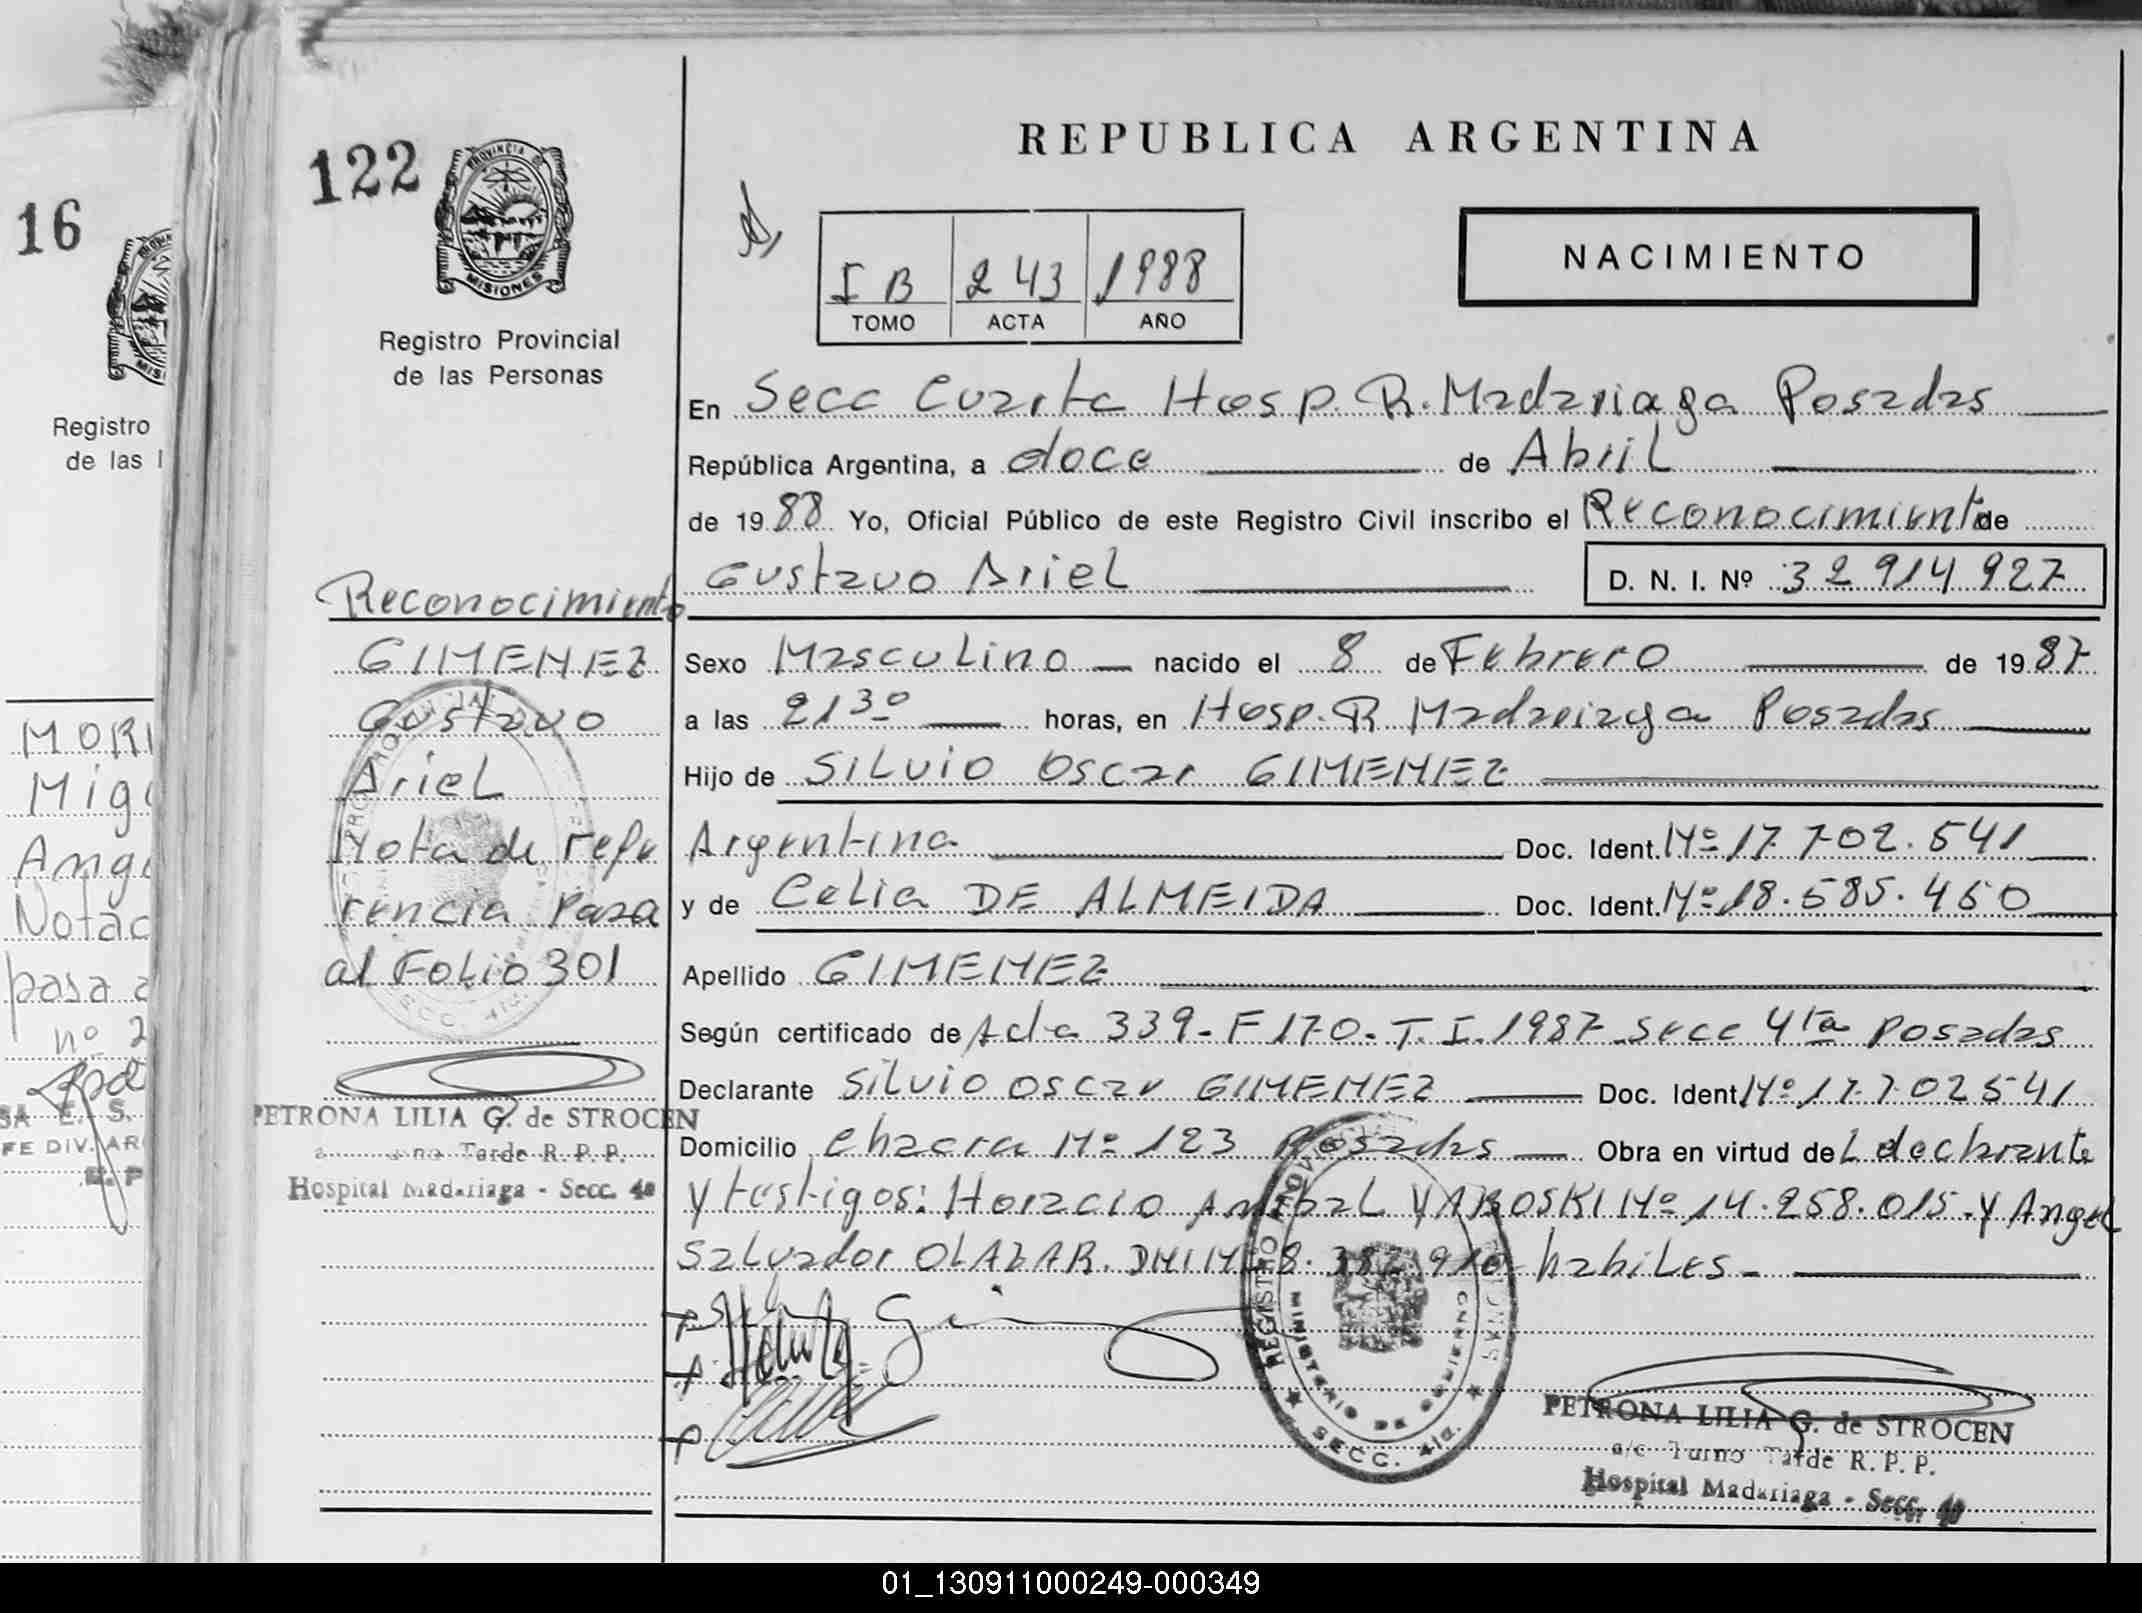 16
Registro
de las
MORI
Mig
Ang
Notac
pasa a
nº 2
FE DIV. AR
122
PROVINCIA DE MISIONES
Registro Provincial
de las Personas
Reconocimiento
GIMENEZ
Gustavo
Ariel
Nota de refe
rencia Pasa
al Folio 301
PETRONA LILIA G. de STROCEN
Tarde R. P. P.
Hospital Madariaga - Secc. 4a
REPUBLICA ARGENTINA
I B 243 1988
TOMO ACTA AÑO
NACIMIENTO
En Secc Cuarta Hosp. R. Madariaga Posadas
República Argentina, a doce de Abril
de 1988 Yo, Oficial Público de este Registro Civil inscribo el Reconocimiento de
Gustavo Ariel D. N. I. Nº 32 914 927
Sexo Masculino nacido el 8 de Febrero de 1987
a las 21 30 horas, en Hosp. R Madariaga Posadas
Hijo de Silvio Oscar GIMENEZ
Argentina Doc. Ident. Nº 17 702.541
y de Celia DE ALMEIDA Doc. Ident. Nº 18.585.450
Apellido GIMENEZ
Según certificado de Acta 339-F170-T.I.1987 Secc 4ta Posadas
Declarante Silvio Oscar GIMENEZ Doc. Ident Nº 17.702541
Domicilio Chacra Nº 123 Posadas Obra en virtud del declarante
y testigos: Horacio Anibal YABOSKI Nº 14.258.015. y Angel
Salvador OLAZAR. DNI Nº 8.382.910 habiles
REGISTRO PROVINCIAL
MINISTERIO DE GOBIERNO
SECC. 4ta.
PETRONA LILIA G. de STROCEN
a/c Turno Tarde R. P. P.
Hospital Madariaga - Secc. 4a
01_130911000249-000349